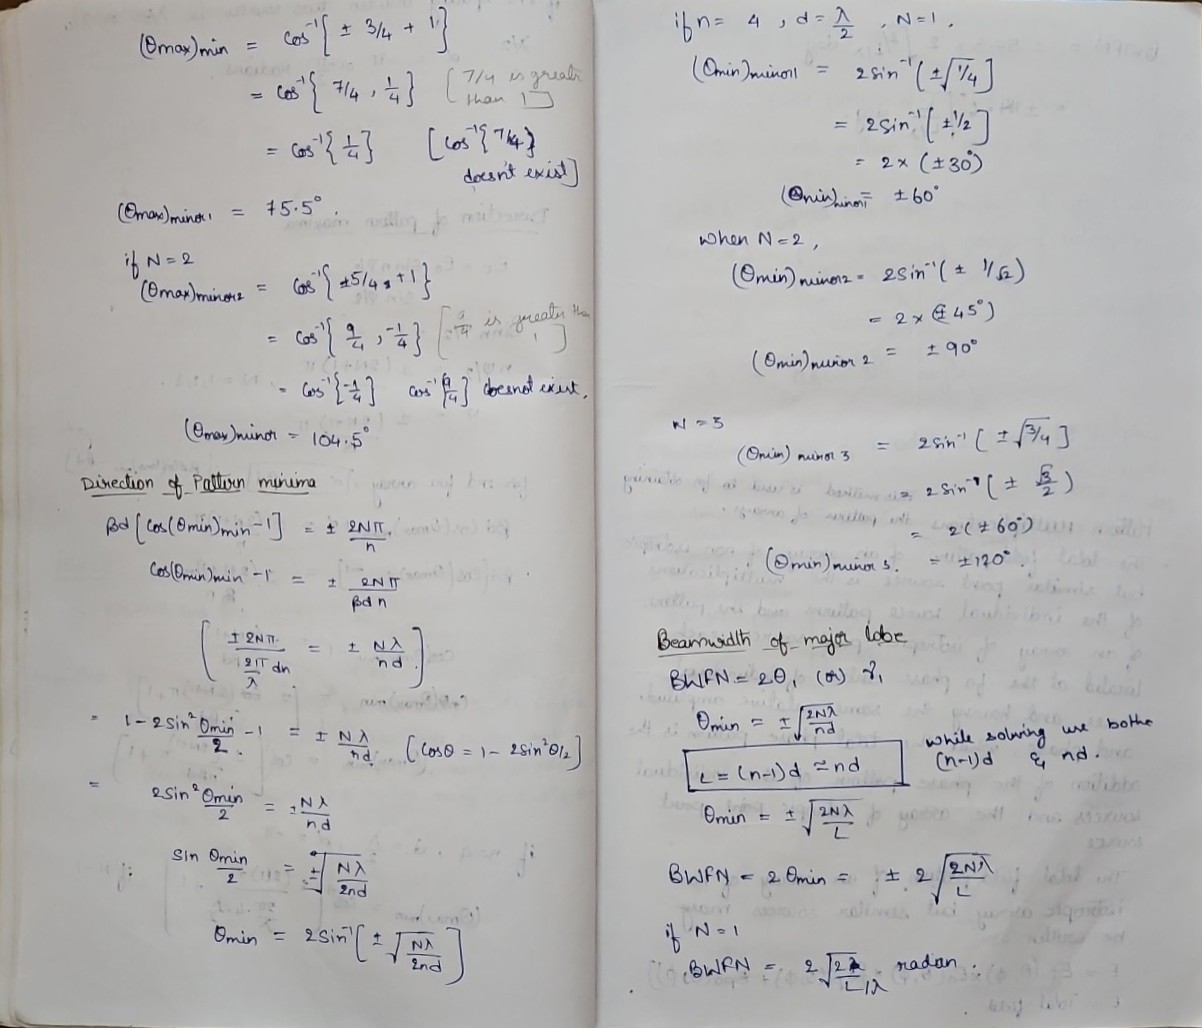 (θmax)min = cos⁻¹{ ± 3/4 + 1 }
= cos⁻¹{ 7/4 , 1/4 } [ 7/4 is greater than 1 ]
= cos⁻¹{ 1/4 } [cos⁻¹{7/4} doesn't exist]
(θmax)minor1 = 75.5°.
if N=2
(θmax)minor2 = cos⁻¹{ ±5/4 + 1 }
= cos⁻¹{ 9/4 , -1/4 } [ 9/4 is greater than 1 ]
= cos⁻¹{-1/4} cos⁻¹{9/4} doesnot exist.
(θmax)minor = 104.5°
Direction of Pattern minima
βd [cos(θmin)min -1] = ± 2Nπ/n
cos(θmin)min -1 = ± 2Nπ/βdn
( ± 2Nπ / (2π/λ) dn = ± Nλ/nd )
= 1 - 2sin² θmin/2 - 1 = ± Nλ/nd [cosθ = 1 - 2sin²θ/2]
= 2sin² θmin/2 = ± Nλ/nd
sin θmin/2 = ± √(Nλ/2nd)
θmin = 2sin⁻¹[ ± √(Nλ/2nd) ]
if n = 4 , d = λ/2 , N = 1 .
(θmin)minor1 = 2sin⁻¹[ ±√1/4 ]
= 2sin⁻¹[ ±1/2 ]
= 2 × (±30°)
(θmin)minor1 = ±60°
when N=2,
(θmin)minor2 = 2sin⁻¹( ± 1/√2 )
= 2 × (±45°)
(θmin)minor 2 = ±90°
N = 3
(θmin) minor 3 = 2sin⁻¹ [ ±√3/4 ]
= 2sin⁻¹ ( ± √3/2 )
= 2(±60°)
(θmin)minor 3. = ±120°.
Beamwidth of major lobe
BWFN = 2θ, (or) γ₁
θmin = ± √(2Nλ/nd)
L = (n-1)d ≃ nd while solving use bothe (n-1)d & nd.
θmin = ± √(2Nλ/L)
BWFN = 2 θmin = ± 2 √(2Nλ/L)
if N = 1
BWFN = 2 √(2/L/λ) radan.